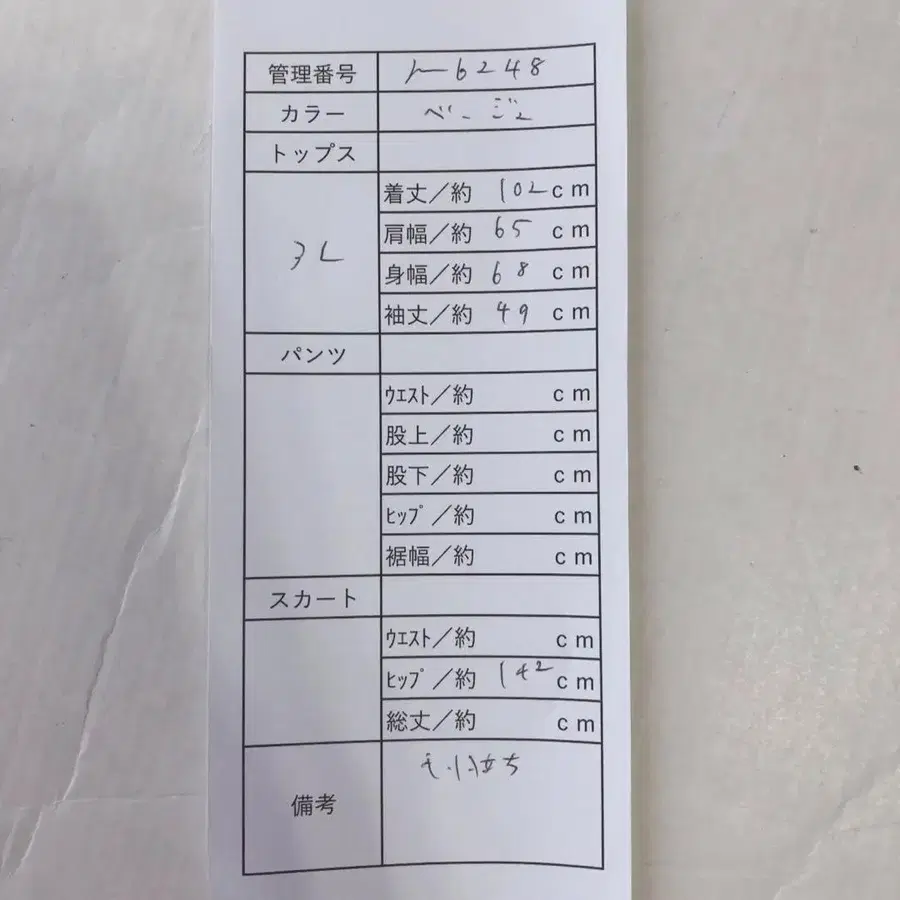 管理番号 6248
カラー ベージュ
トップス
3L
着丈／約 102cm
肩幅／約 65 cm
身幅／約 68 cm
袖丈／約 49 cm
パンツ
ｳｴｽﾄ／約 cm
股上／約 cm
股下／約 cm
ﾋｯﾌﾟ／約 cm
裾幅／約 cm
スカート
ｳｴｽﾄ／約 cm
ﾋｯﾌﾟ／約 142cm
総丈／約 cm
備考 毛羽立ち